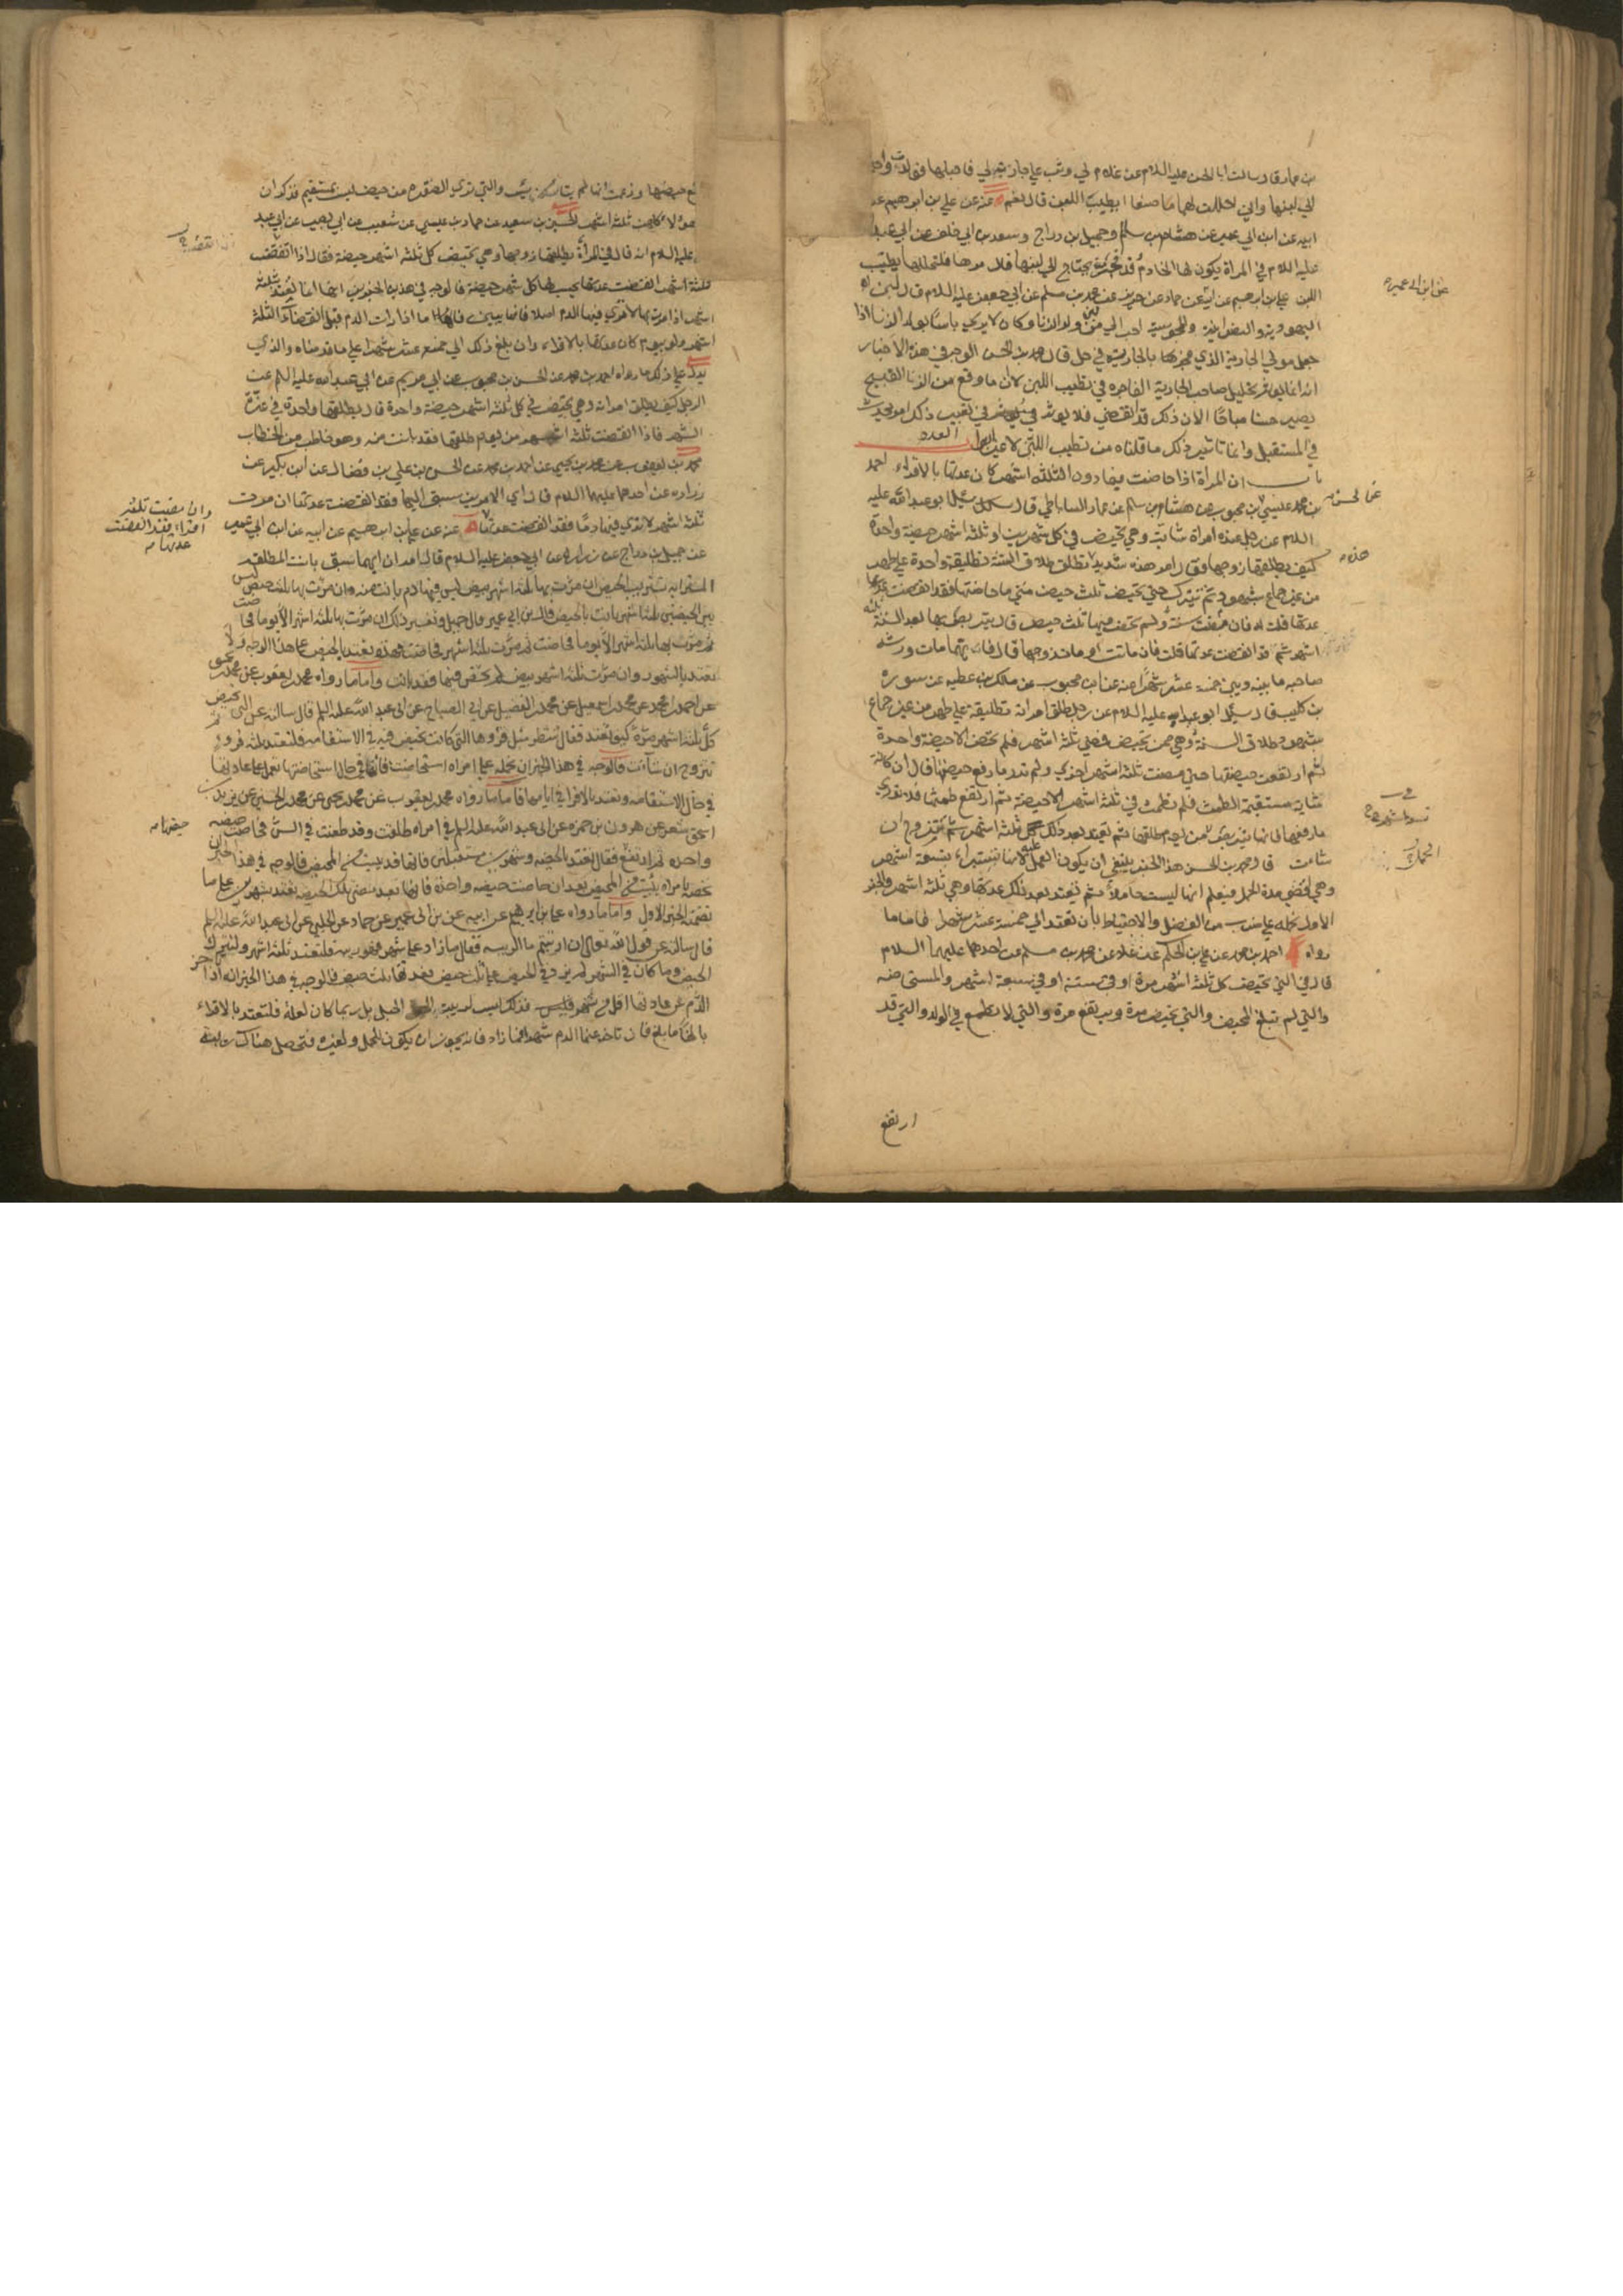 بن عمار قال سالت ابا الحسن عليه السلام عن غلام لي وثب على جارية لي فاحبلها فولدت واحتجنا
الى لبنها واني احللت لهما ما صنعا ايطيب اللبن قال نعم عنه عن علي بن ابرهيم عن
ابيه عن ابن ابي عمير عن هشام بن سالم وجميل بن دراج وسعد بن ابي خلف عن ابي عبد الله
عليه السلام في المراة يكون لها الخادم قد فجرت يحتاج الى لبنها قال مرها فلتحللها يطيب
اللبن علي بن ابرهيم عن ابيه عن حماد عن حريز عن محمد بن مسلم عن ابي جعفر عليه السلام قال لبن
اليهودية والنصرانية والمجوسية احب الي من لبن ولد الزنا وكان لا يرى باسا بولد الزنا اذا
جعل مولى الجارية الذي فجر بها بالجارية في حل قال محمد بن الحسن الوجه في هذه الاخبار
انه انما يؤثر تحليل صاحب الجارية الفاجرة في تطييب اللبن لان ما وقع من الزنا القبيح
يصير حسنا مباحا لان ذلك قد انقضى فلا يؤثر في تغيب ذلك امر يحدث
في المستقبل وانما تاثير ذلك ما قلناه من تطييب اللبن لا غير ابواب العدد
باب ان المراة اذا حاضت فيما دون الثلثة اشهر كان عدتها بالاقراء احمد
بن محمد بن عيسى عن ابن محبوب عن هشام بن سالم عن عمار الساباطي قال سئل ابو عبد الله عليه
السلام عن رجل عنده امراة شابة وهي تحيض في كل شهرين او ثلثة اشهر حيضة واحدة
كيف يطلقها زوجها فقال امر هذه شديد تطلق طلاق السنة تطليقة واحدة على طهر
من غير جماع بشهود ثم تترك حتى تحيض ثلث حيض متى ما حاضتها فقد انقضت عدتها
قلت له فان مضت سنة ولم تحض فيها ثلث حيض قال يتربص بها بعد السنة ثلثة
اشهر ثم قد انقضت عدتها قلت فان ماتت او مات زوجها قال فايهما مات ورثه
صاحبه ما بينه وبين خمسة عشر شهرا عنه عن ابن محبوب عن ملك بن عطية عن سورة
بن كليب قال سئل ابو عبد الله عليه السلام عن رجل طلق امراته تطليقة على طهر من غير جماع
بشهود طلاق السنة وهي ممن تحيض فمضى ثلثة اشهر فلم تحض الا حيضة واحدة
ثم ارتفعت حيضتها حتى مضت ثلثة اشهر اخرى ولم تدر ما رفع حيضتها قال ان كانت
شابة مستقيمة الطمث فلم تطمث في ثلثة اشهر الا حيضة ثم ارتفع طمثها فلا تدري
ما رفعها فانها تتربص من يوم طلقها ثم تعتد بعد ذلك ثلثة اشهر ثم تتزوج ان
شاءت قال محمد بن الحسن هذا الخبر ينبغي ان يكون العمل عليه لانها تستبراء بتسعة اشهر
وهي اقصى مدة الحمل فيعلم انها ليست حاملا ثم تعتد بعد ذلك عدتها وهي ثلثة اشهر والخبر
الاول نحمله على ضرب من الفضل والاحتياط بان تعتد الى خمسة عشر شهرا فاما ما
رواه احمد بن محمد عن علي بن الحكم عن علاء عن محمد بن مسلم عن احدهما عليهما السلام
قال في التي تحيض كل ثلثة اشهر مرة او في ستة او في سبعة اشهر والمستحاضة
والتي لم تبلغ المحيض والتي تحيض مرة ويرتفع مرة والتي لا تطمع في الولد والتي قد
ارتفع
عن ابن ابي عمير
عن الحسن
هذه
الحمل
ارتفع حيضها وزعمت انها لم تيأس والتي ترى الصفرة من حيض ليس بمستقيم فذكر ان
عدة هؤلاء كلهن ثلثة اشهر الحسين بن سعيد عن حماد بن عيسى عن شعيب عن ابي بصير عن ابي عبد
الله عليه السلام انه قال في المرأة يطلقها زوجها وهي تحيض كل ثلثة اشهر حيضة فقال اذا انقضت
ثلثة اشهر انقضت عدتها يحسب لها كل شهر حيضة فالوجه في هذين الخبرين انها انما تعتد بثلثة
اشهر اذا مرت بها لا ترى فيها الدم اصلا فاما اذا رات الدم قبل انقضاء الثلثة
اشهر ولو بيوم كان عدتها بالاقراء وان بلغ ذلك الى خمسة عشر شهرا على ما قدمناه والذي
يدل على ذلك ما رواه احمد بن محمد عن الحسن بن محبوب عن ابي مريم عن ابي عبد الله عليه السلم عن
الرجل كيف يطلق امراته وهي تحيض في كل ثلثة اشهر حيضة واحدة قال يطلقها واحدة في غرة
الشهر فاذا انقضت ثلثة اشهر من يوم طلقها فقد بانت منه وهو خاطب من الخطاب
محمد بن يعقوب عن محمد بن يحيى عن احمد بن محمد عن الحسن بن علي بن فضال عن ابن بكير عن
زرارة عن احدهما عليهما السلام قال اي الامرين سبق اليها فقد انقضت عدتها ان مرت
ثلثة اشهر لا ترى فيها دما فقد انقضت عدتها عنه عن علي بن ابرهيم عن ابيه عن ابن ابي عمير
عن جميل بن دراج عن زرارة عن ابي جعفر عليه السلام قال امران ايهما سبق بانت المطلقة
المسترابة تستريب الحيض ان مرت بها ثلثة اشهر بيض ليس فيها دم بانت منه وان مرت بها ثلث حيض ليس
بين الحيضتين ثلثة اشهر بانت بالحيض قال ابن ابي عمير قال جميل وتفسير ذلك ان مرت بها ثلثة اشهر الا يوما فحاضت
ثم مرت بها ثلثة اشهر الا يوما فحاضت ثم مرت ثلثة اشهر فحاضت فهذه تعتد بالحيض على هذا الوجه ولا
تعتد بالشهور وان مرت ثلثة اشهر بيض لم تحض فيها فقد بانت واما ما رواه محمد بن يعقوب عن محمد بن يحيى
عن احمد بن محمد عن محمد بن اسمعيل عن محمد بن الفضيل عن ابي الصباح عن ابي عبد الله عليه السلم قال سالته عن التي تحيض
كل ثلثة اشهر مرة كيف تعتد فقال تنتظر مثل قرؤها التي كانت تحيض فيه في الاستقامة فلتعتد ثلثة قروء ثم
تتزوج ان شاءت فالوجه في هذا الخبر ان نحمله على امراة استحاضت فانها في حال استحاضتها تعمل على عادتها
في حال الاستقامة وتعتد بالاقراء في ايامها فاما ما رواه محمد بن يعقوب عن محمد بن يحيى عن محمد بن الحسين عن يزيد بن
اسحق شعر عن هرون بن حمزة عن ابي عبد الله عليه السلم في امراة طلقت وقد طعنت في السن فحاضت حيضة
واحدة ثم ارتفع فقال تعتد بالحيضة وشهرين مستقبلين فانها قد يئست من المحيض فالوجه في هذا الخبر ان
نخصه بامراة يئست من المحيض بعد ان حاضت حيضة واحدة فانها تعتد بتلك الحيضة وتعتد شهرين على ما
تضمنه الخبر الاول واما ما رواه علي بن ابرهيم عن ابيه عن ابن ابي عمير عن حماد عن الحلبي عن ابي عبد الله عليه السلم
قال سالته عن قول الله تعالى ان ارتبتم ما الريبة فقال ما زاد على شهر فهو ريبة فلتعتد ثلثة اشهر ولتترك
الحيض وما كان في الشهر لم يزد في الحيض على ثلث حيض فعدتها ثلث حيض فالوجه في هذا الخبر انه اذا تاخر
الدم عن عادتها اقل من شهر فليس ذلك لريبة الحبل بل ربما كان لعلة فلتعتد بالاقراء
بالغا ما بلغ فان تاخر عنها الدم شهرا فما زاد فانه يجوز ان يكون للحمل ولغيره فتحصل هناك ريبة
وان مضت ثلثة
اقراء فقد انقضت
عدتها